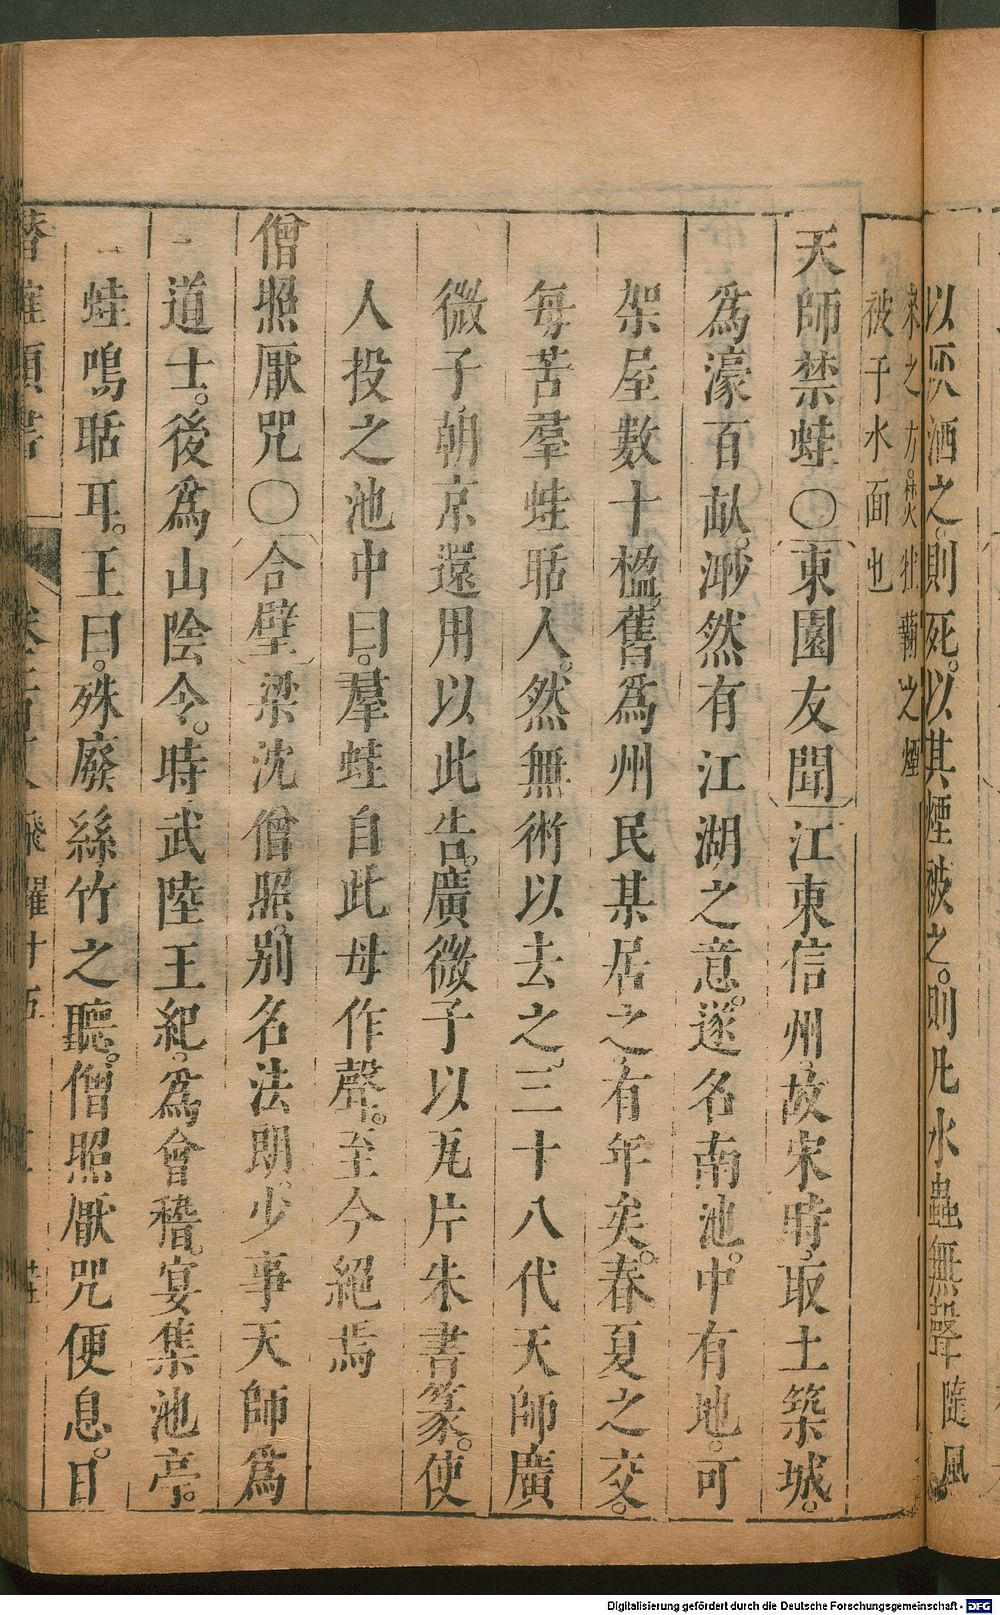 以灰洒之。則死。以其煙被之。則凡水蟲無聲。隨風
來之方。焚牡蘜之煙
被于水面也
天師禁蛙〇東園友聞江東信州。故宋時。取土築城。
爲濠百畝。渺然有江湖之意。遂名南池。中有地。可
架屋數十楹。舊爲州民某居之。有年矣。春夏之交。
每苦羣蛙聒人。然無術以去之。三十八代天師廣
微子朝京還。用以此告。廣微子以瓦片朱書篆。使
人投之池中曰。羣蛙自此毋作聲。至今絕焉
僧照厭咒〇合璧梁沈僧照。別名法朗。少事天師爲
道士。後爲山陰令。時武陸王紀。爲會稽。宴集池亭。
蛙鳴聒耳。王曰。殊廢絲竹之聽。僧照厭咒便息。日
潛確類書 飛躍廿五
Digitalisierung gefördert durch die Deutsche Forschungsgemeinschaft - DFG